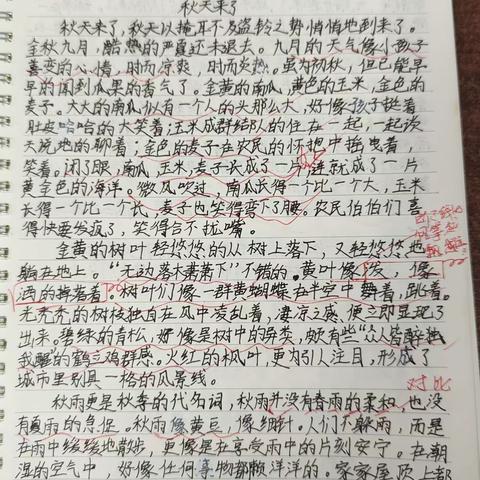 秋天来了
秋天来了,秋天以掩耳不及盗铃之势悄悄地到来了。
金秋九月,酷热的严夏还未退去。九月的天气像小孩子
善变的心情,时而凉爽,时而炎热。虽为初秋,但已能早
早的闻到瓜果的香气了。金黄的南瓜,黄色的玉米,金色的
麦子。大大的南瓜似有一个人的头那么大,好像孩子挺着
肚皮哈哈的大笑着;玉米成群结队的住在一起,一起谈
天说地的聊着;金色的麦子在农民的怀抱中摇曳着,
笑着。闭了眼,南瓜,玉米,麦子长成了一片,连就成了一片
黄金色的海洋。微风吹过,南瓜长得一个比一个大,玉米
长得一个比一个长,麦子也笑得弯下了腰。农民伯伯们喜
得快要发疯了,笑得合不拢嘴。
金黄的树叶轻悠悠的从树上落下,又轻悠悠地
躺在地上。“无边落木萧萧下”不错的。黄叶像泼,像
洒的掉落着。树叶们像一群黄蝴蝶在半空中舞着,跳着。
光秃秃的树枝独自在风中凌乱着,凄凉之感便立即显现了
出来。碧绿的青松,好像是树中的异类,颇有些“众人皆醉独
我醒”的鹤立鸡群感。火红的枫叶,更为引人注目,形成了
城市里别具一格的风景线。
对比
秋雨更是秋季的代名词,秋雨并没有春雨的柔和,也没
有夏雨的急促。秋雨像黄豆,像细针。人们不躲雨,而是
在雨中缓缓地散步,更像是在享受雨中的片刻安宁。在潮
湿的空气中,好像任何事物都懒洋洋的。家家屋顶上都